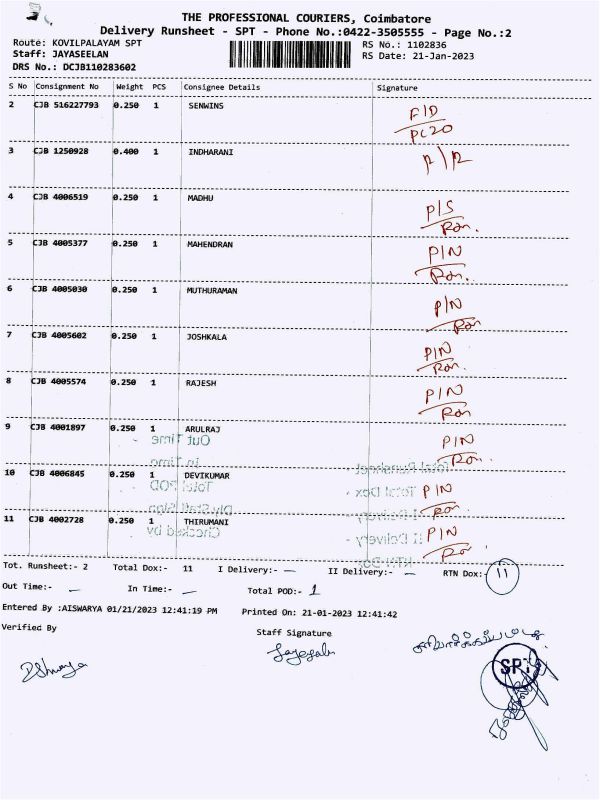 THE PROFESSIONAL COURIERS, Coimbatore
Delivery Runsheet - SPT - Phone No.:0422-3505555 - Page No.:2
Route: KOVILPALAYAM SPT RS No.: 1102836
Staff: JAYASEELAN RS Date: 21-Jan-2023
DRS No.: DCJB110283602
S No Consignment No Weight PCS Consignee Details Signature
2 CJB 516227793 0.250 1 SENWINS F/D
PC20
3 CJB 1250928 0.400 1 INDHARANI
4 CJB 4006519 0.250 1 MADHU P/S
Ron.
5 CJB 4005377 0.250 1 MAHENDRAN P/N
Ron.
6 CJB 4005030 0.250 1 MUTHURAMAN P/N
Ron
7 CJB 4005602 0.250 1 JOSHKALA P/N
Ron.
8 CJB 4005574 0.250 1 RAJESH P/N
Ron
9 CJB 4001897 0.250 1 ARULRAJ P/N
Ron.
Out Time -
In Time -
Total Runsheet -
10 CJB 4006845 0.250 1 DEVIKUMAR P/N
Ron.
Total POD -
Total Dox -
Dly Staff Sign
I Delivery -
11 CJB 4002728 0.250 1 THIRUMANI P/N
Ro
Checked by
II Delivery -
RTN Dox
Tot. Runsheet:- 2 Total Dox:- 11 I Delivery:- — II Delivery:- — RTN Dox:- 11
Out Time:- — In Time:- — Total POD:- 1
Entered By :AISWARYA 01/21/2023 12:41:19 PM Printed On: 21-01-2023 12:41:42
Verified By Staff Signature
SPT